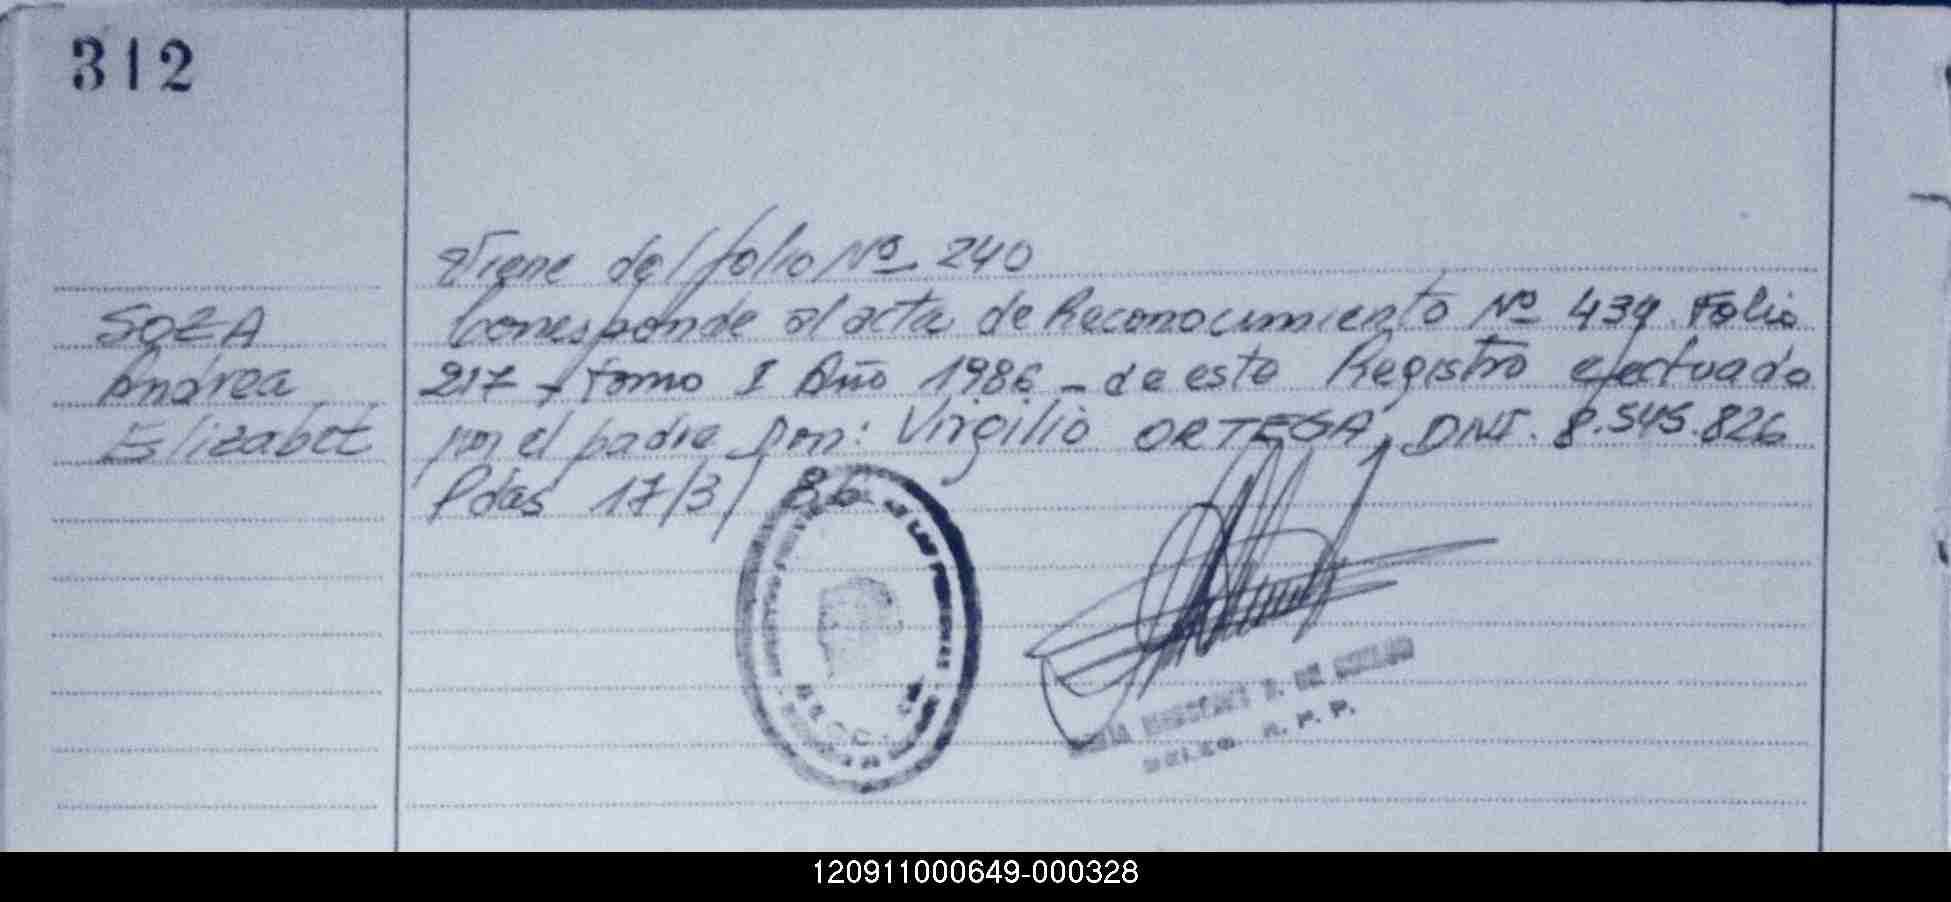 312
Viene del folio Nº 240
SOZA
Corresponde al acta de Reconocimiento Nº 439 Folio
Andrea
217 - Tomo I Año 1986 - de este Registro efectuado
Elizabet
por el padre Don: Virgilio ORTEGA, DNI. 8.545.826
Pdas 17/3/86
DE LAS PERSONAS
DELEG. R. P. P.
120911000649-000328